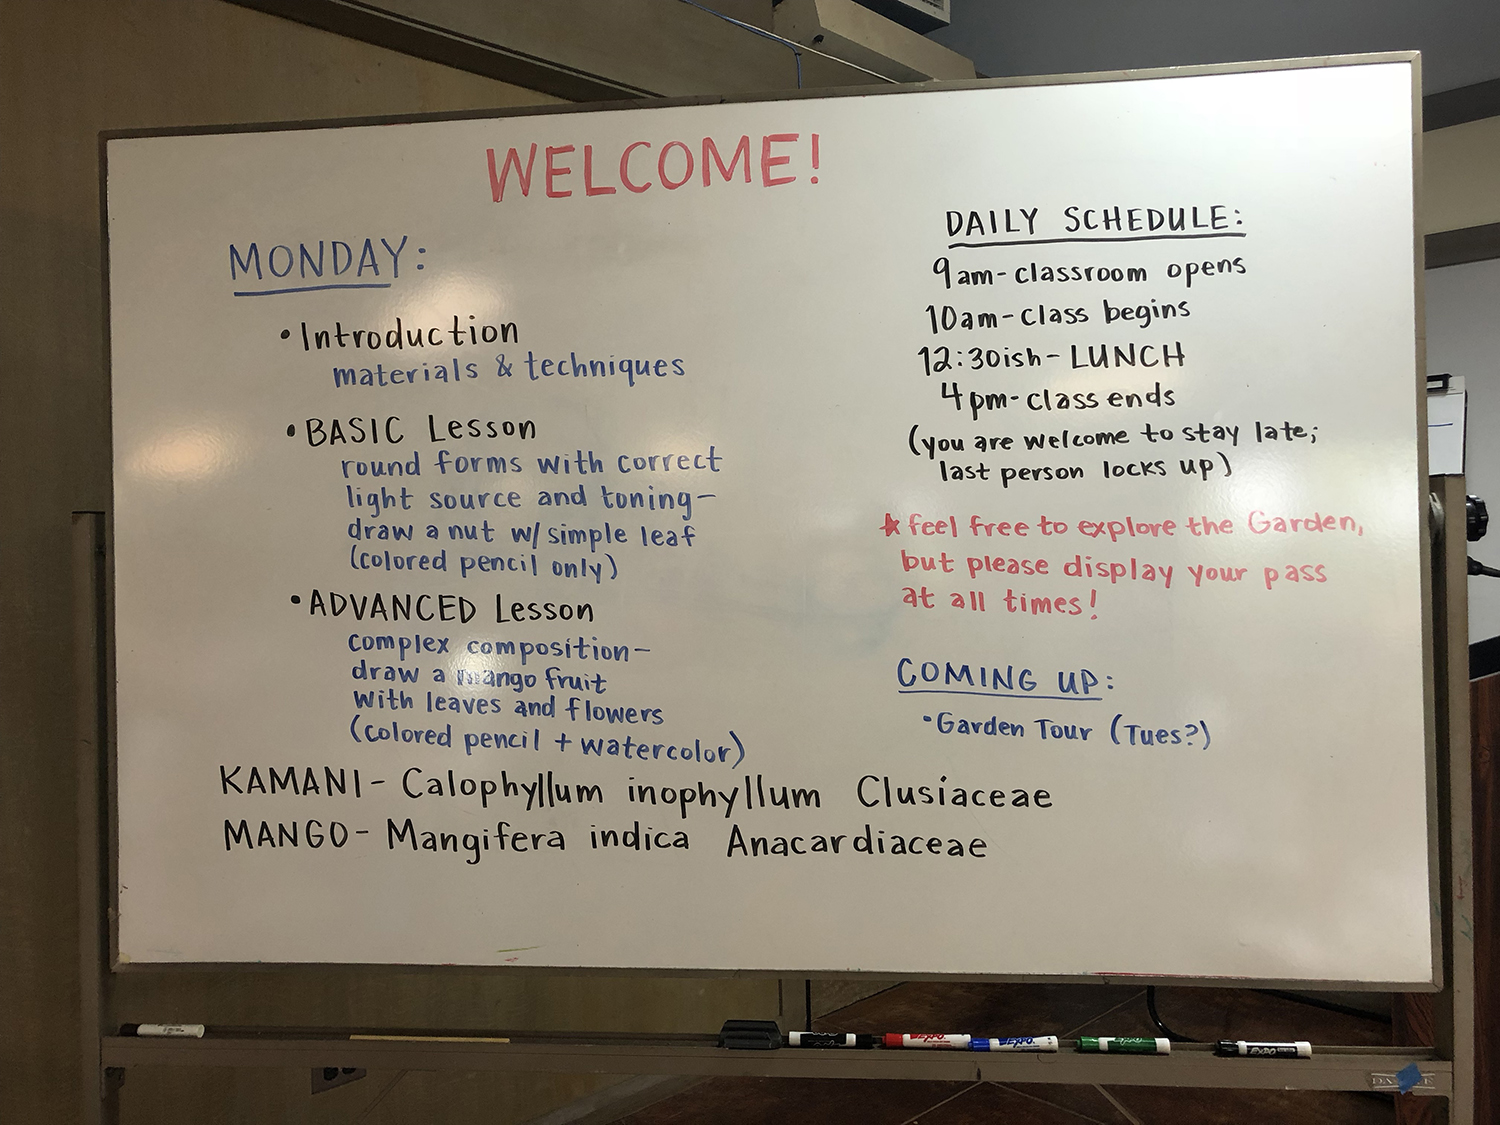 WELCOME!
MONDAY:
• Introduction
materials & techniques
• BASIC Lesson
round forms with correct
light source and toning-
draw a nut w/ simple leaf
(colored pencil only)
• ADVANCED Lesson
complex composition-
draw a mango fruit
with leaves and flowers
(colored pencil + watercolor)
KAMANI- Calophyllum inophyllum Clusiaceae
MANGO- Mangifera indica Anacardiaceae
DAILY SCHEDULE:
9am- classroom opens
10am- class begins
12:30ish- LUNCH
4pm- class ends
(you are welcome to stay late;
last person locks up)
* feel free to explore the Garden,
but please display your pass
at all times!
COMING UP:
• Garden Tour (Tues?)
EXPO
EXPO
EXPO